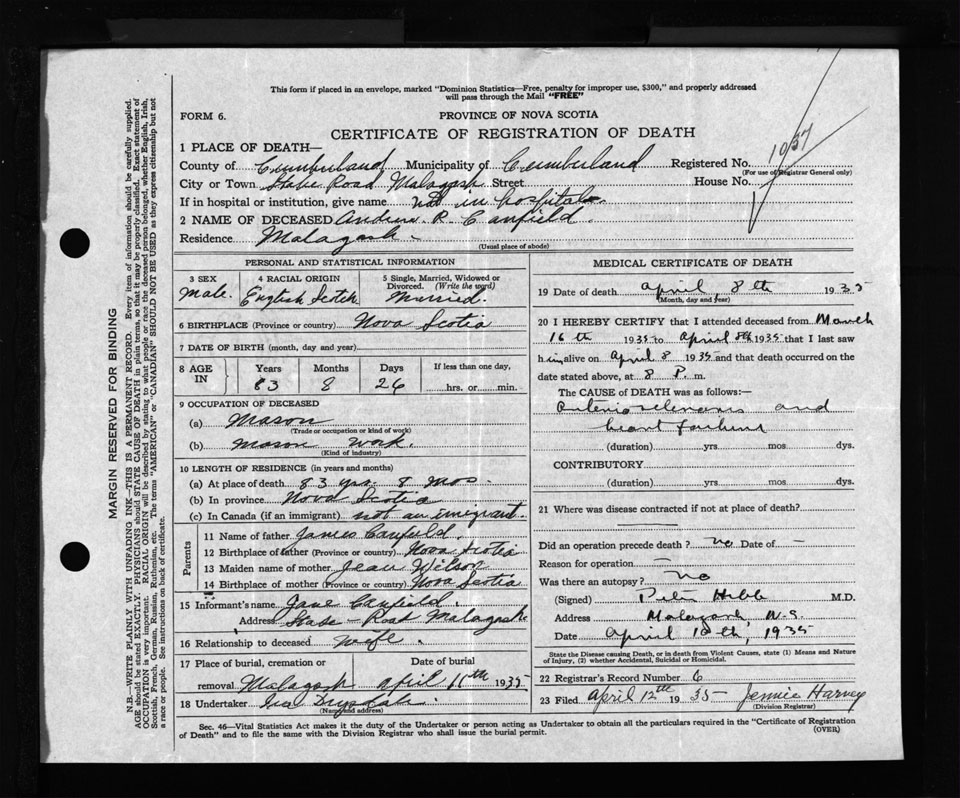 This form if placed in an envelope, marked "Dominion Statistics—Free, penalty for improper use, $300," and properly addressed
will pass through the Mail "FREE"
FORM 6.
PROVINCE OF NOVA SCOTIA
CERTIFICATE OF REGISTRATION OF DEATH
1 PLACE OF DEATH—
County of Cumberland Municipality of Cumberland Registered No. 1037
(For use of Registrar General only)
City or Town State Road, Malagash Street House No.
If in hospital or institution, give name not in hospital
2 NAME OF DECEASED Andrew R. Canfield.
Residence Malagash
(Usual place of abode)
PERSONAL AND STATISTICAL INFORMATION
3 SEX 4 RACIAL ORIGIN 5 Single, Married, Widowed or
Divorced. (Write the word)
Male. English Scotch Married.
6 BIRTHPLACE (Province or country) Nova Scotia
7 DATE OF BIRTH (month, day and year)
8 AGE IN Years Months Days If less than one day,
83 8 26 hrs. or min.
9 OCCUPATION OF DECEASED
(a) Mason
(Trade or occupation or kind of work)
(b) Mason Work.
(Kind of industry)
10 LENGTH OF RESIDENCE (in years and months)
(a) At place of death 83 yrs. 8 Mos.
(b) In province Nova Scotia
(c) In Canada (if an immigrant) not an imigrant.
Parents
11 Name of father James Canfield.
12 Birthplace of father (Province or country) Nova Scotia
13 Maiden name of mother Jean Wilson
14 Birthplace of mother (Province or country) Nova Scotia
15 Informant's name Jane Canfield.
Address State - Road Malagash
16 Relationship to deceased wife.
17 Place of burial, cremation or Date of burial
removal Malagash April 11th 1935
18 Undertaker Ira Drysdale
(Name and address)
MEDICAL CERTIFICATE OF DEATH
19 Date of death April 8th 1935
(Month, day and year)
20 I HEREBY CERTIFY that I attended deceased from March
16th 1935 to April 8th 1935 that I last saw
him alive on April 8 1935 and that death occurred on
date stated above, at 8 P. m.
The CAUSE of DEATH was as follows:
Arteriosclerosis and
heart failure
(duration) yrs mos dys.
CONTRIBUTORY
(duration) yrs. mos. dys.
21 Where was disease contracted if not at place of death?
Did an operation precede death? no Date of —
Reason for operation —
Was there an autopsy? no
(Signed) Peter Hebb M.D.
Address Malagash, N.S.
Date April 10th, 1935
State the Disease causing Death, or in death from Violent Causes, state (1) Means and Nature
of Injury, (2) whether Accidental, Suicidal or Homicidal.
22 Registrar's Record Number 6
23 Filed April 12th 1935 Jennie Harvey
(Division Registrar)
Sec. 46—Vital Statistics Act makes it the duty of the Undertaker or person acting as Undertaker to obtain all the particulars required in the "Certificate of Registration
of Death" and to file the same with the Division Registrar who shall issue the burial permit. (OVER)
MARGIN RESERVED FOR BINDING
N.B.—WRITE PLAINLY WITH UNFADING INK—THIS IS A PERMANENT RECORD. Every item of information should be carefully supplied.
AGE should be stated EXACTLY. PHYSICIANS should STATE CAUSE OF DEATH in plain terms, so that it may be properly classified. Exact statement of
OCCUPATION is very important. RACIAL ORIGIN will be described by stating to what people or race the deceased person belonged, whether English, Irish,
Scottish, French, German, Russian, Ruthenian, etc. The terms "AMERICAN" or "CANADIAN" SHOULD NOT BE USED as they express citizenship but not
a race or people. See instructions on back of certificate.